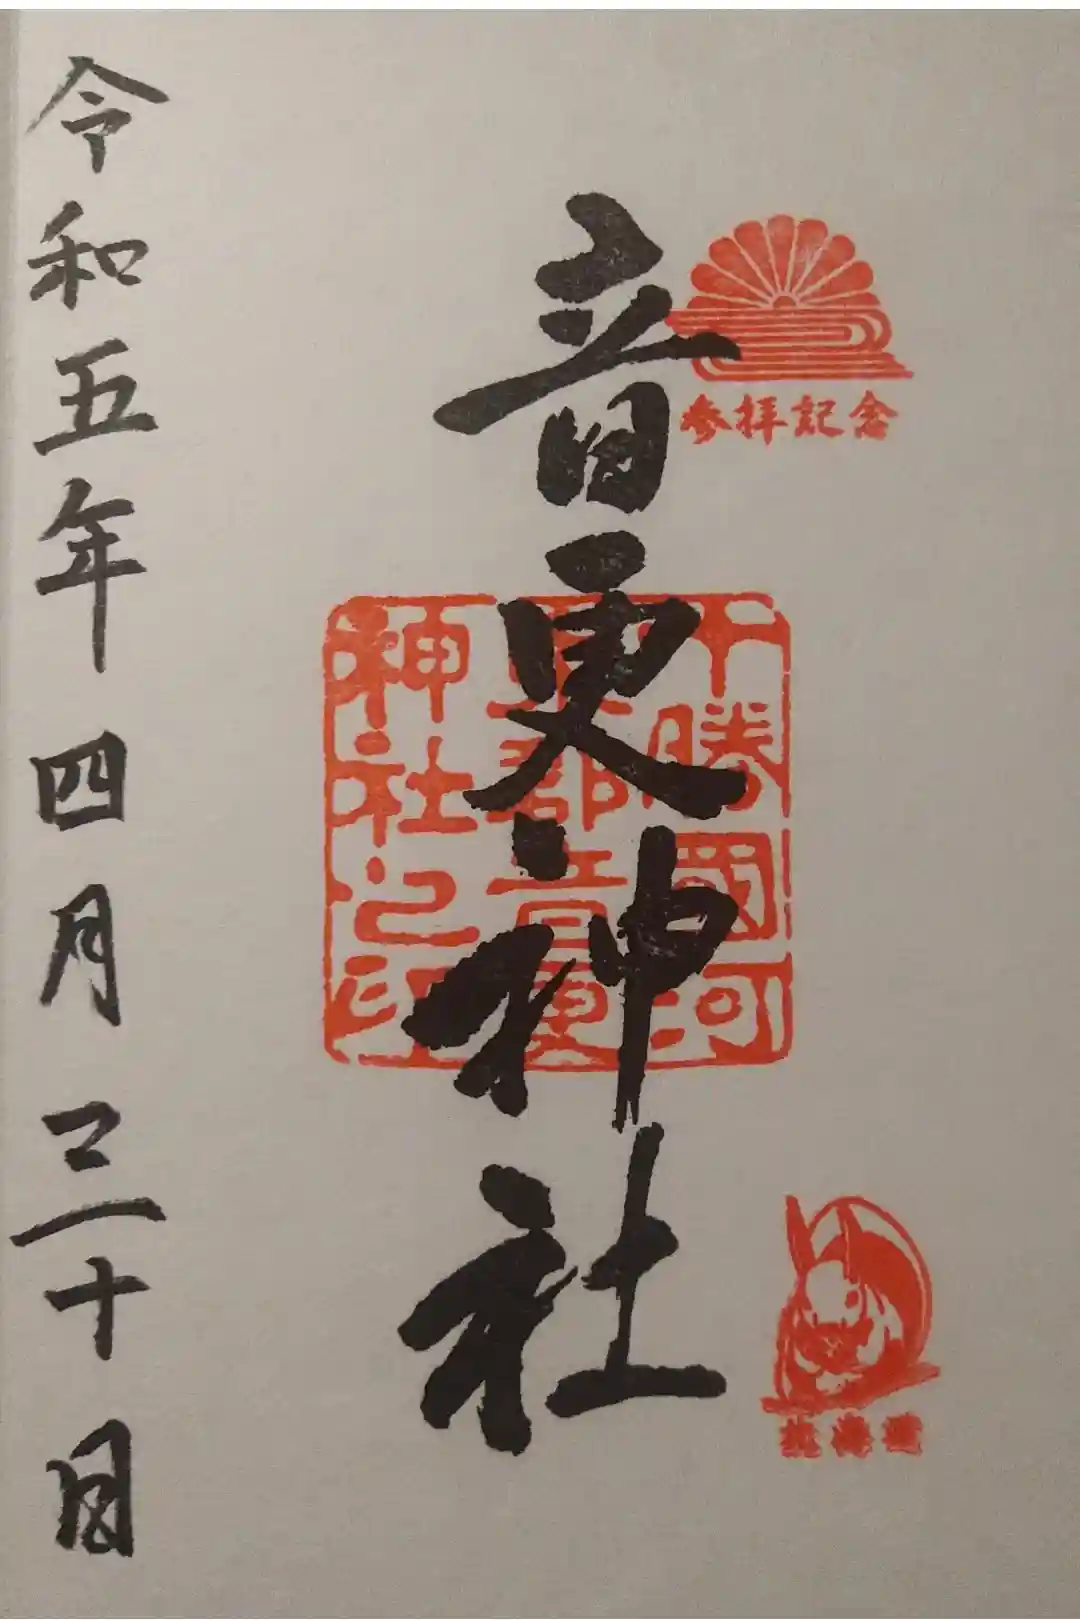 参拝記念
音更神社
十勝國河
東郡音更
神社之印
北海道
令和五年四月三十日